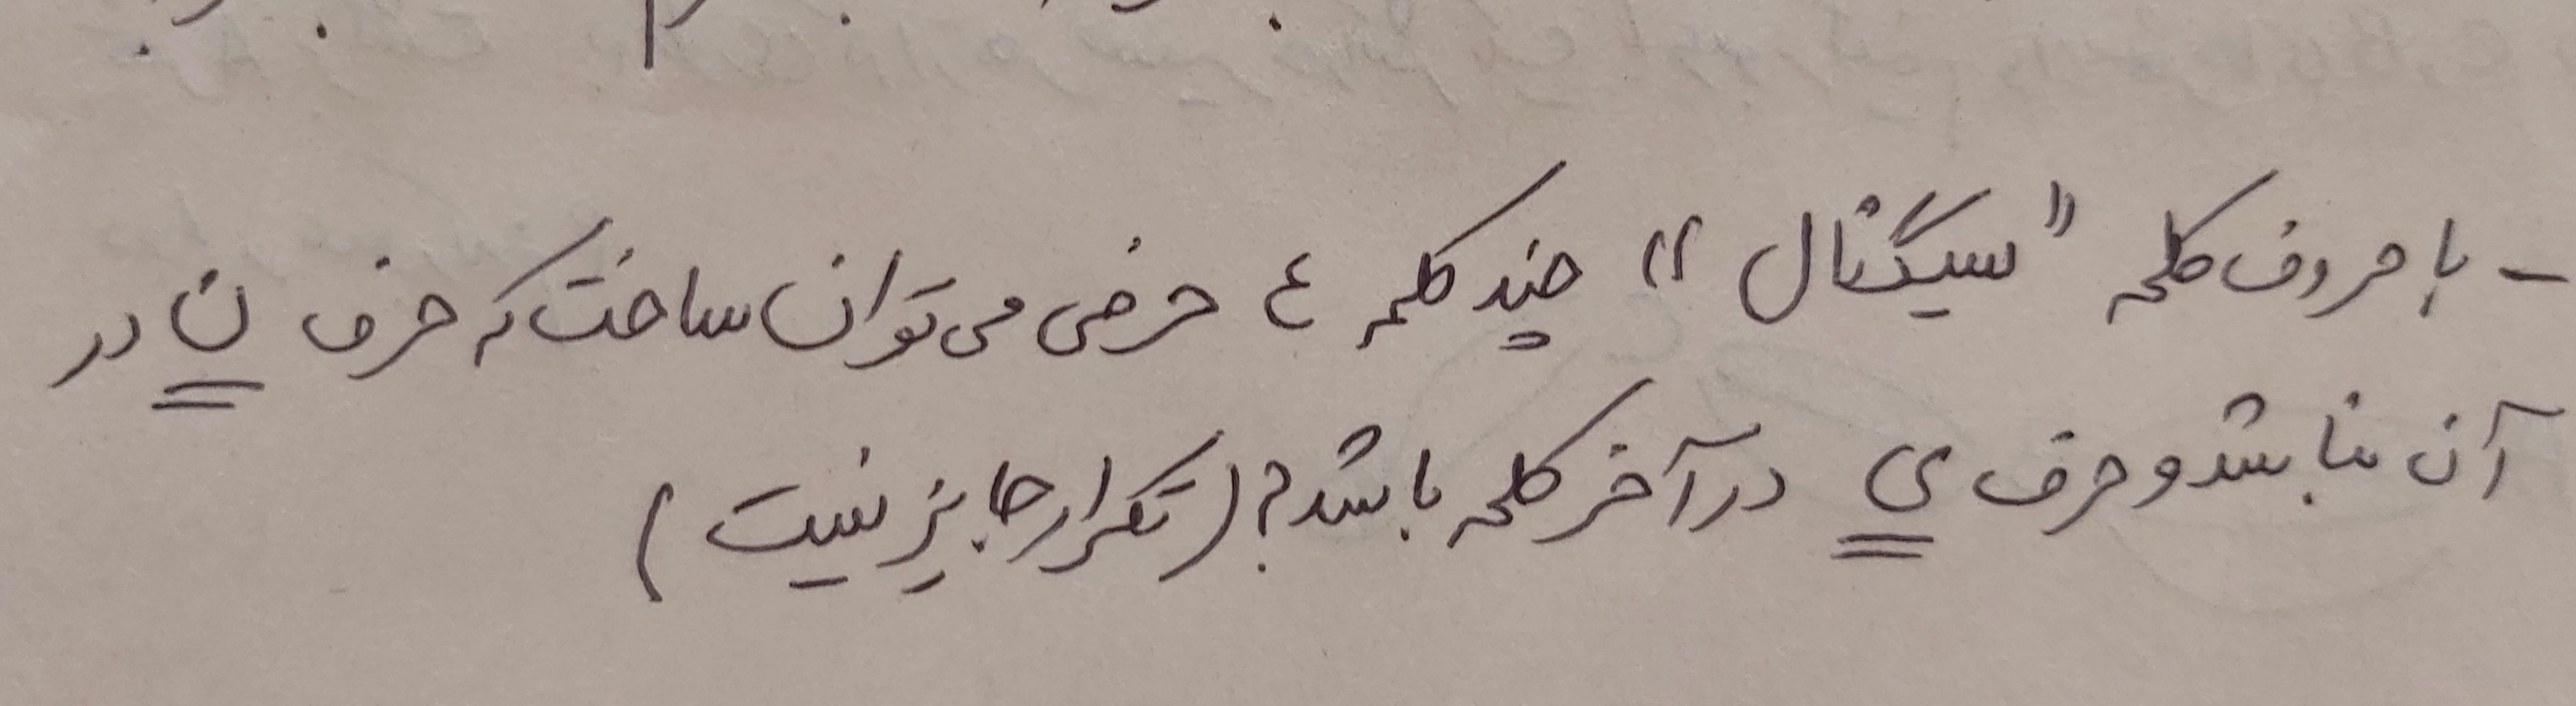 - با حروف کلمه "سیگنال" چند کلمه ٤ حرفی می‌توان ساخت که حرف ن در
آن نباشد و حرف ی در آخر کلمه باشد؟ (تکرار جایز نیست)